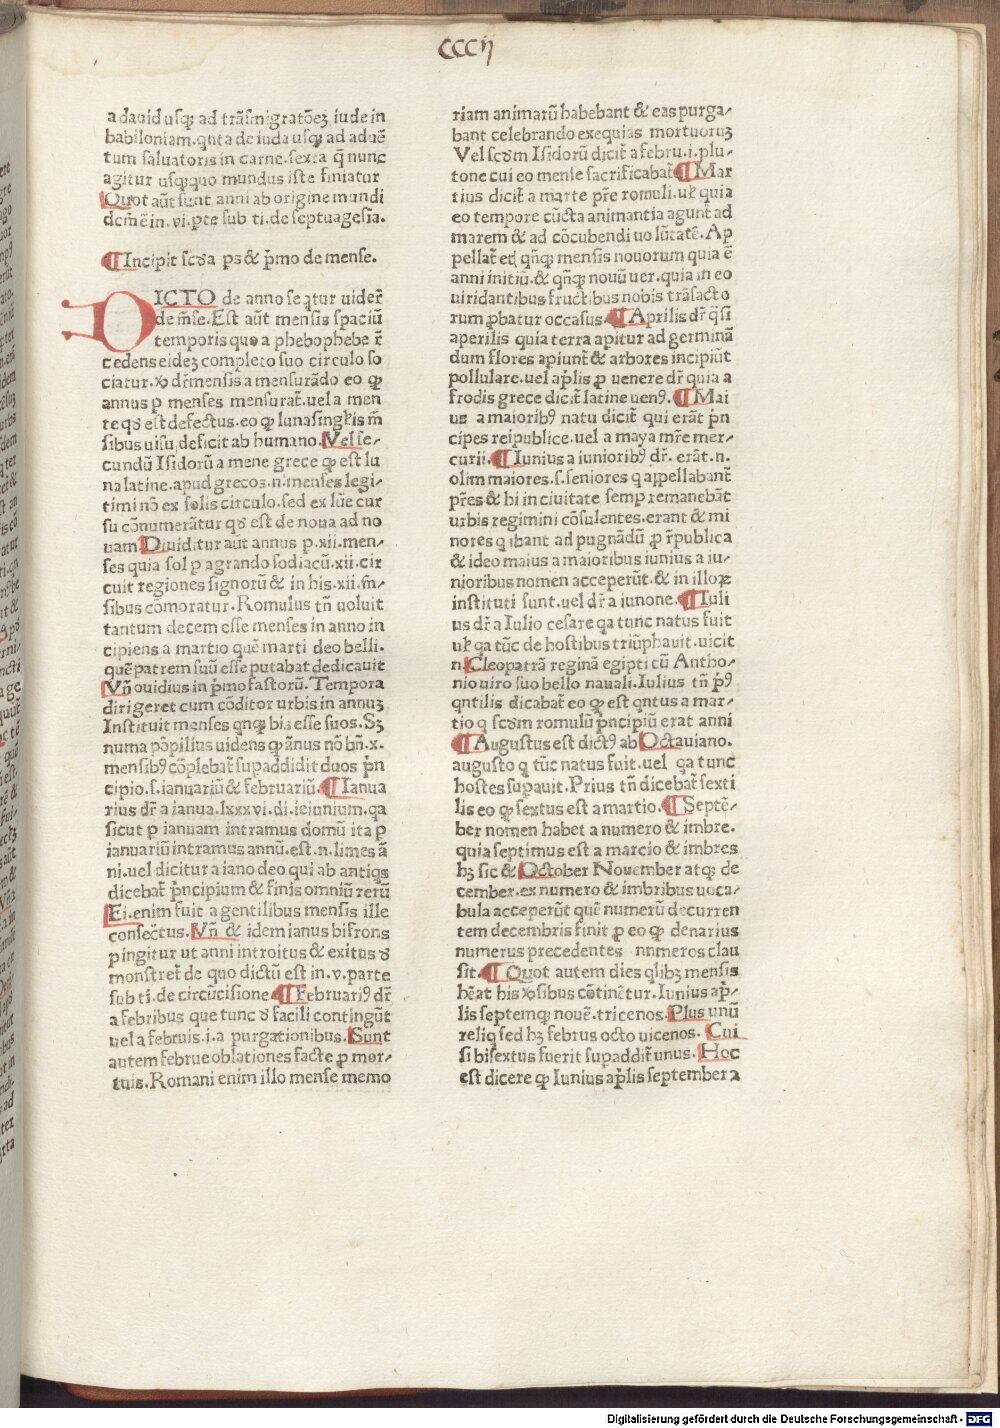 CCCij
a dauid usqꝫ ad trāsmigratōeꝫ iude in
babiloniam. qnta de iuda usqꝫ ad aduē
tum saluatoris in carne. sexta q̄ nunc
agitur usqꝫquo mundus iste finiatur
Quot aūt sunt anni ab origine mundi
dcm̄ ē in. vi. pte sub ti. de septuagesia.
¶ Incipit scďa ps & p̄mo de mense.
DICTO de anno seqtur uider̄
de m̄se. Est aūt mensis spaciū
temporis quo a phebo phebe r̄
cedens eideꝫ completo suo circulo so
ciatur. v̉o dr̄ mensis a mensurādo eo ꝙ
annus p menses mensurat̄. uel a men
te qď est defectus. eo ꝙ luna singl̄is m̄
sibus uisu deficit ab humano. Vel se-
cundū Isidorū a mene grece ꝙ est lu
na latine. apud grecos. n. menses legi-
timi nō ex solis circulo. sed ex lūe cur
su cōnumerātur qď est de noua ad no
uam. Diuiditur aūt annus p. xii. men-
ses quia sol p agrando sodiacū. xii. cir
cuit regiones signorū & in his. xii. m̄-
sibus cōmoratur. Romulus tn̄ uoluit
tantum decem esse menses in anno in
cipiens a martio quē marti deo belli.
quē patrem suū esse putabat dedicauit
Vn̄ ouidius in p̄mo fastorū. Tempora
dirigeret cum cōditor urbis in annuꝫ
Instituit menses qnqꝫ bis esse suos. Sꝫ
numa pōpilius uidens ꝙ ānus nō bn̄. x.
mensibꝰ cōplebat̄ supaddidit duos p̄n
cipio. s. ianuariū & februariū. ¶ Ianua
rius dr̄ a ianua. lxxxvi. di. ieiunium. qa
sicut p ianuam intramus domū ita p
ianuariū intramus annū. est. n. limes ā
ni. uel dicitur a iano deo qui ab antiqs
dicebat̄ p̄ncipium & finis omniū rerū
Ei. enim fuit a gentilibus mensis ille
consec̄tus. Vn̄ & idem ianus bifrons
pingitur ut anni introitus & exitus ď
monstret̄ de quo dictū est in. v. parte
sub ti. de circūcisione ¶ Februariꝰ dr̄
a febribus que tunc ď facili contingūt
uel a februis. i. a purgationibus. Sunt
autem februe oblationes facte ꝓ mor-
tuis. Romani enim illo mense memo
riam animarū habebant & eas purga-
bant celebrando exequias mortuoruꝫ
Vel scďm Isidorū dicit̄ a febru. i. plu-
tone cui eo mense sacrificabat̄ ¶ Mar
tius dicit̄ a marte pr̄e romuli. ul̄ quia
eo tempore cūcta animantia agunt ad
marem & ad cōcubendi uolūtatē. Ap
pellat̄ et qn̄qꝫ mensis nouorum quia ē
anni initiū. & qn̄qꝫ nouū uer. quia in eo
uiridantibus fructibus nobis trāsacto
rum ꝓbatur occasus. ¶ Aprilis dr̄ qsi
aperilis quia terra apitur ad germinā
dum flores apiunt̄ & arbores incipiūt
pollulare. uel ap̄lis p uenere dr̄ quia a
frodis grece dicit̄ latine uenꝰ. ¶ Mai
us a maioribꝰ natu dicit̄ qui erāt p̄n
cipes reipublice. uel a maya mr̄e mer-
curii. ¶ Iunius a iunioribꝰ dr̄. erāt. n.
olim maiores. s. seniores q appellabant̄
pr̄es & hi in ciuitate semp remanebāt
urbis regimini cōsulentes. erant & mi
nores q ibant ad pugnādū ꝓ r̄publica
& ideo maius a maioribus iunius a iu-
nioribus nomen acceperūt. & in illoꝝ
instituti sunt. uel dr̄ a iunone. ¶ Iuli
us dr̄ a Iulio cesare qa tunc natus fuit
ul̄ qa tūc de hostibus triūphauit. uicit
n. Cleopatrā reginā egipti cū Antho-
nio uiro suo bello nauali. Iulius tn̄ p̄ꝰ
qntilis dicabat̄ eo ꝙ est qntus a mar-
tio q scďm romulū p̄ncipiū erat anni
¶ Augustus est dictꝰ ab Octauiano.
augusto q tūc natus fuit. uel qa tunc
hostes supauit. Prius tn̄ dicebat̄ sexti
lis eo ꝙ sextus est a martio. ¶ Septē-
ber nomen habet a numero & imbre.
quia septimus est a marcio & imbres
hꝫ sic & October Nouember atqꝫ de
cember. ex numero & imbribus uoca-
bula acceperūt quē numerū decurren
tem decembris finit ꝓ eo ꝙ denarius
numerus precedentes nnmeros clau
sit. ¶ Quot autem dies qlibꝫ mensis
hēat his v̉sibus cōtinētur. Iunius ap̄-
lis septemqꝫ nouē. tricenos. Plus unū
reliq sed hꝫ februs octo uicenos. Cui
si bisextus fuerit supaddit̄ unus. Hoc
est dicere ꝙ Iunius ap̄lis september ⁊
Digitalisierung gefördert durch die Deutsche Forschungsgemeinschaft - DFG